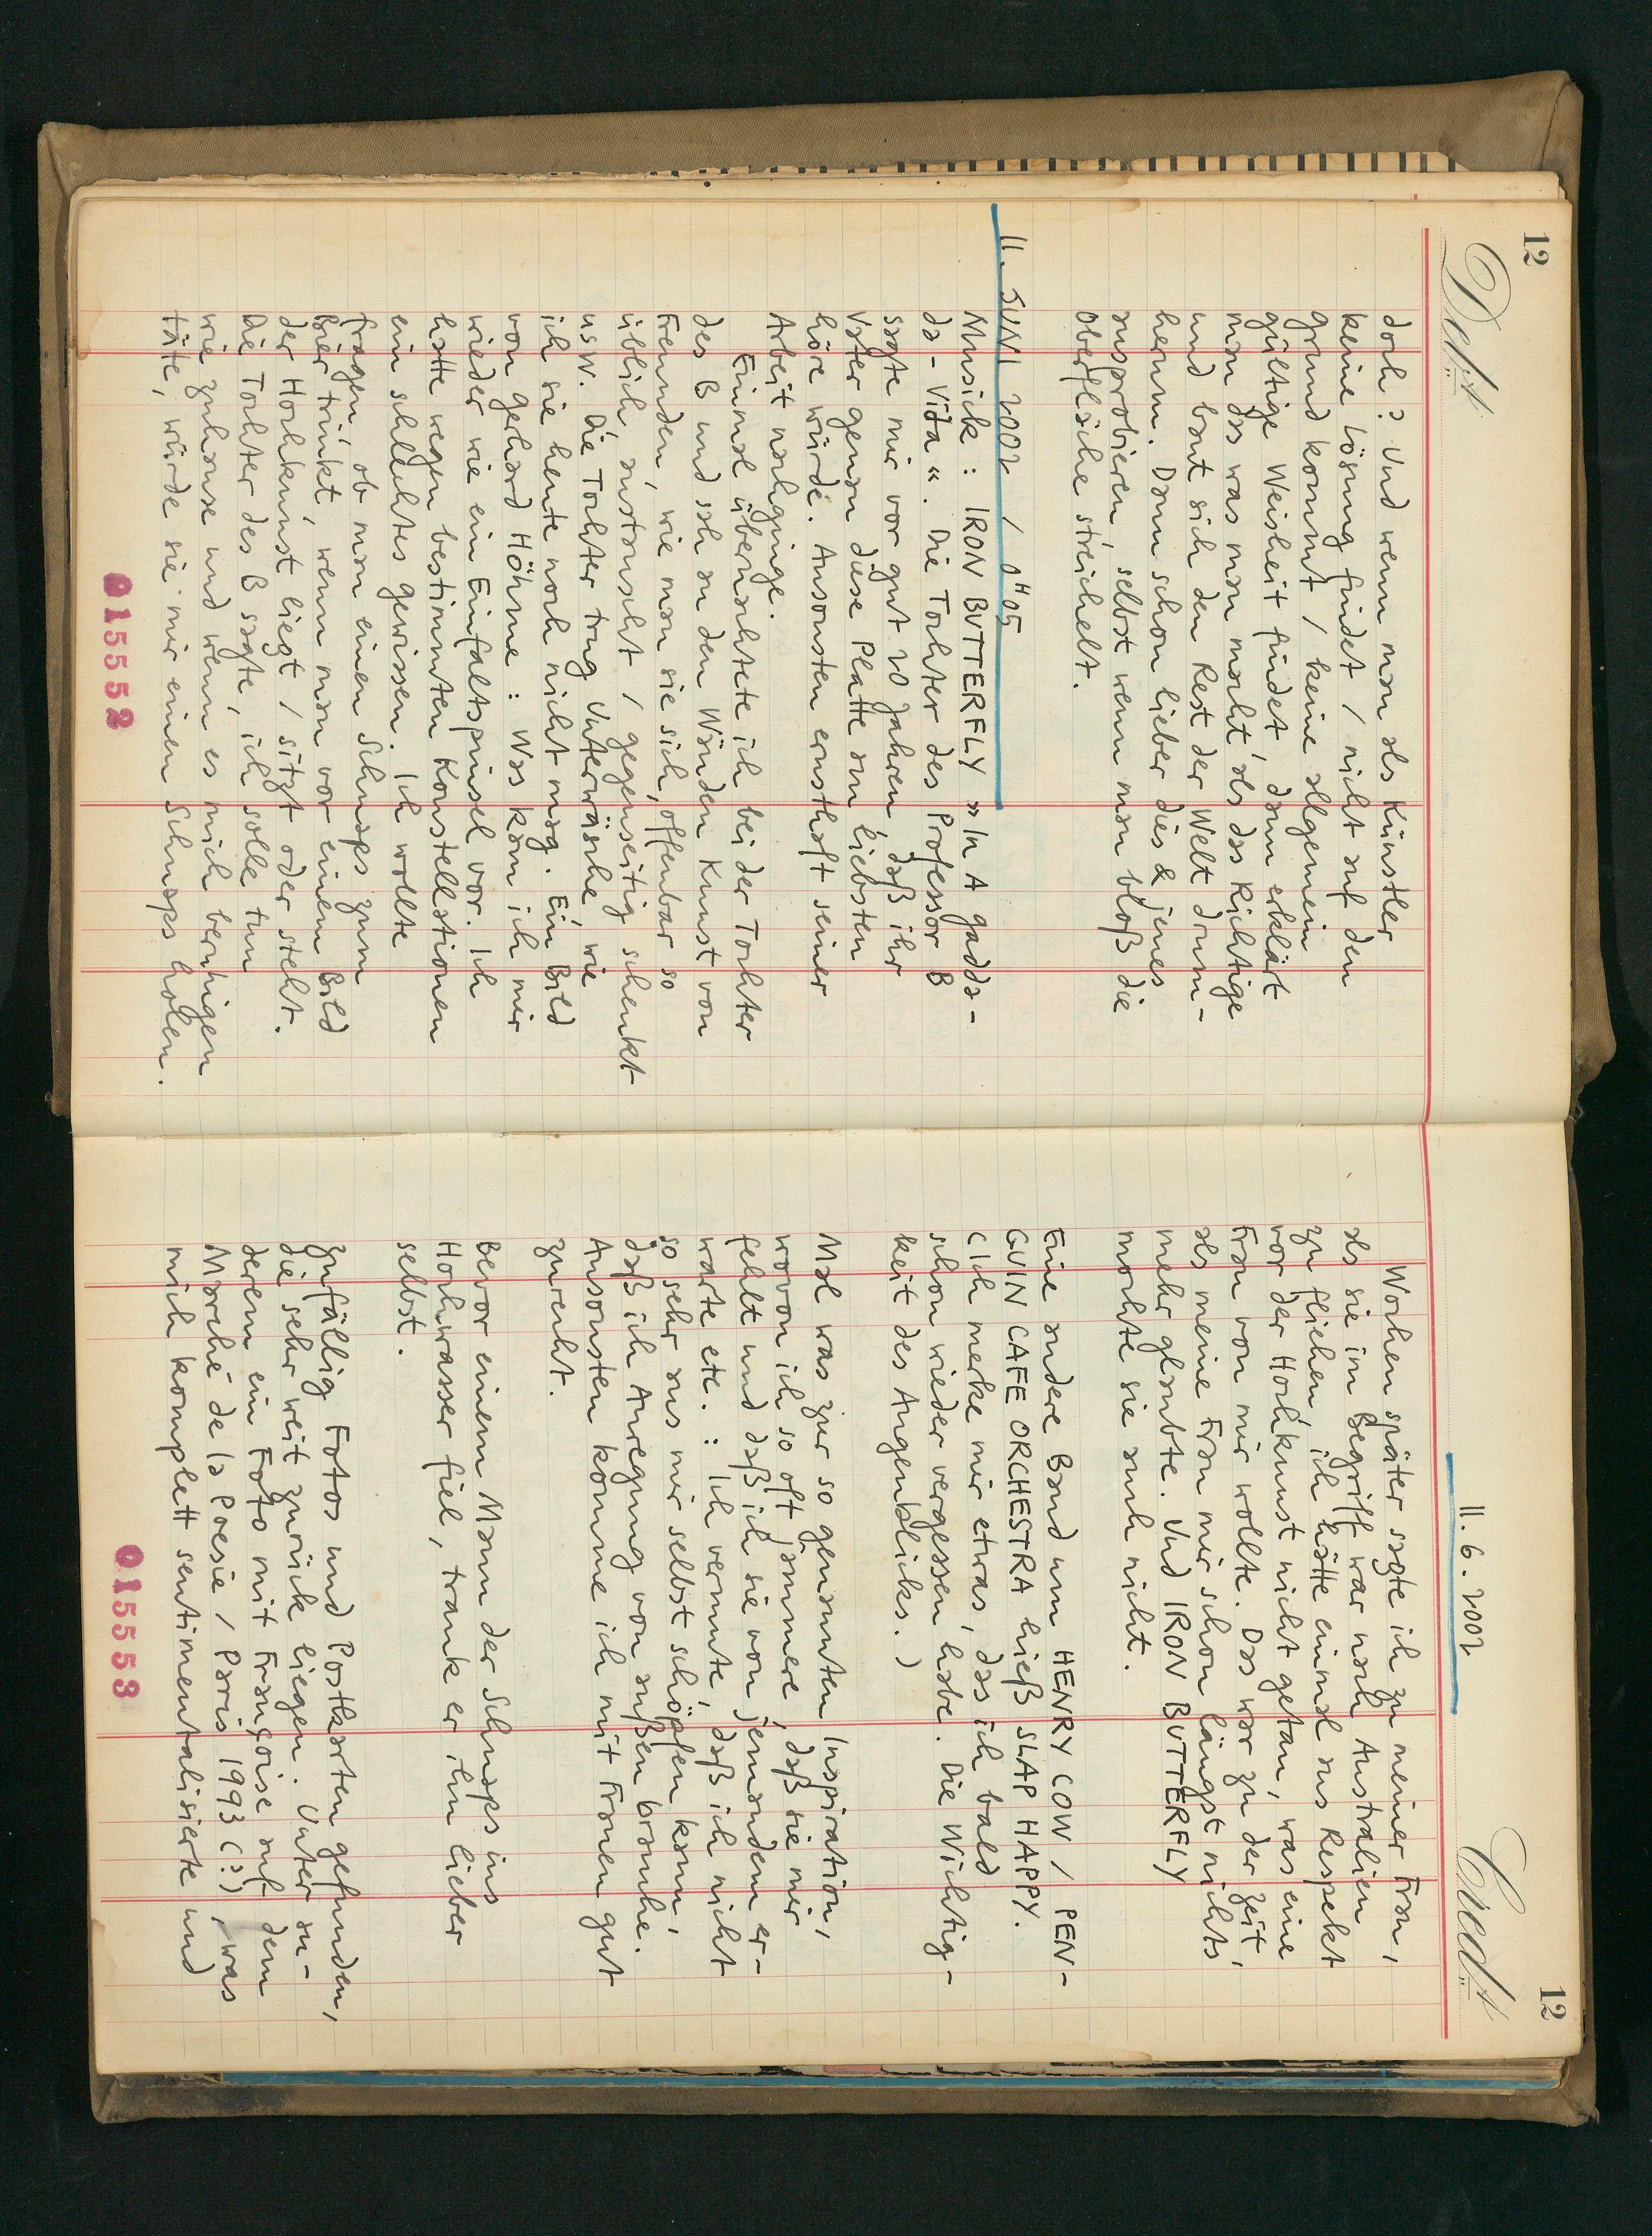 12
Debit
doch? Und wenn man als Künstler
keine Lösung findet / nicht auf den
Grund kommt / keine allgemein
gültige Weisheit findet, dann erklärt
man das was man macht, als das Richtige
und baut sich den Rest der Welt drum-
herum. Dann schon lieber dies & jenes
ausprobieren, selbst wenn man bloß die
Oberfläche streichelt.
11. JUNI 2002 / 0H05
Musick: IRON BUTTERFLY »In A Gadda-
da-Vida«. Die Tochter des Professor B
sagte mir vor gut 20 Jahren, daß ihr
Vater genau diese Platte am liebsten
höre würde. Ansonsten ernsthaft seiner
Arbeit nachginge.
Einmal übernachtete ich bei der Tochter
des B und sah an den Wänden Kunst von
Freunden, wie man sie sich, offenbar so
üblich, austauscht / gegenseitig schenkt
usw. Die Tochter trug Unterwäsche, wie
ich sie heute noch nicht mag. Ein Bild
von Gerhard Höhme: Was kam ich mir
wieder wie ein Einfaltspinsel vor. Ich
hatte wegen bestimmten Konstellationen
ein schlechtes Gewissen. Ich wollte
fragen, ob man einen Schnaps zum
Bier trinkt, wenn man vor einem Bild
der Hochkunst liegt / sitzt oder steht.
Die Tochter des B sagte, ich solle tun
wie zuhause und wenn es mich beruhigen
täte, würde sie mir einen Schnaps holen.
015552
12
Credit
11.6.2002
Wochen später sagte ich zu meiner Frau,
als sie im Begriff war nach Australien
zu fliehen, ich hätte einmal aus Respekt
vor der Hochkunst nicht getan, was eine
Frau von mir wollte. Das war zu der Zeit,
als meine Frau mir schon längst nichts
mehr glaubte. Und IRON BUTTERFLY
mochte sie auch nicht.
Eine andere Band um HENRY COW / PEN-
GUIN CAFE ORCHESTRA hieß SLAP HAPPY.
(Ich merke mir etwas, das ich bald
schon wieder vergessen habe. Die Wichtig-
keit des Augenblicks.)
Mal was zur so genannten Inspiration,
wovon ich so oft jammere, daß sie mir
fehlt und daß ich sie von jemandem er-
warte etc.: Ich vermute, daß ich nicht
so sehr aus mir selbst schöpfen kann,
daß ich Anregung von außen brauche.
Ansonsten komme ich mit Frauen gut
zurecht.
Bevor einem Mann der Schnaps ins
Hochwasser fiel, trank er ihn lieber
selbst.
Zufällig Fotos und Postkarten gefunden,
die sehr weit zurück liegen. Unter an-
derem ein Foto mit Françoise auf dem
Marché de la Poesie / Paris 1993 (?), was
mich komplett sentimentalisierte und
015553